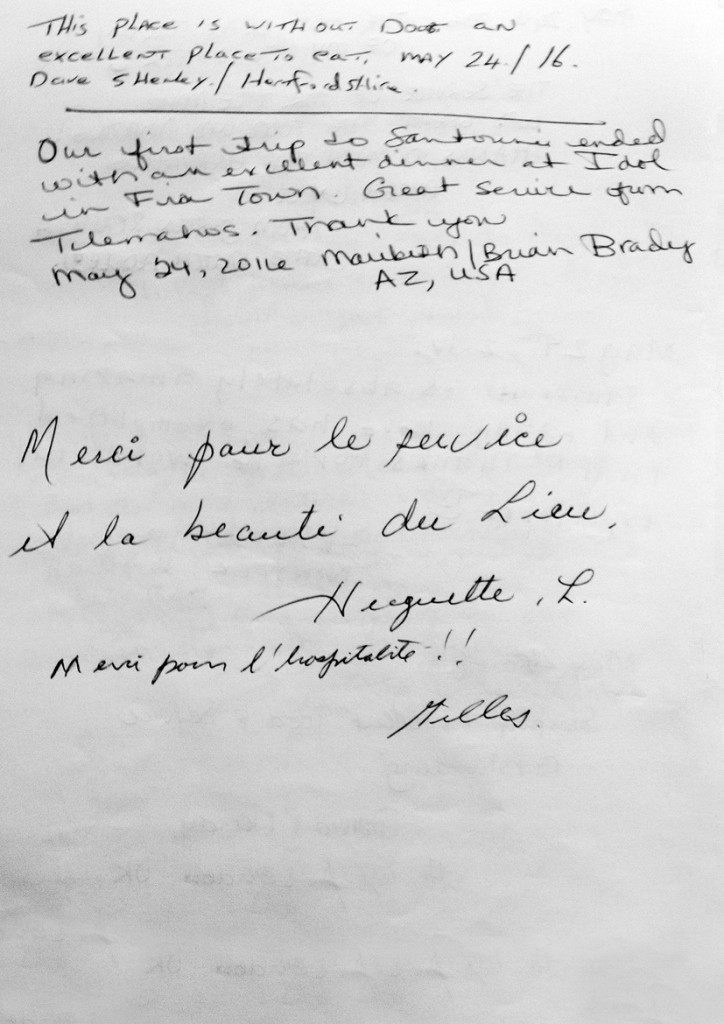 THIS PLACE IS WITHOUT Dout AN
excellent Place To eat, MAY 24/16.
Dave SHenley / Hertfordshire
Our first trip to Santorini ended
with an excellent dinner at Idol
in Fira Town. Great Service from
Tilemahos. Thank you
May 24, 2016 / Brian Brady
AZ, USA
Merci pour le service
et la beauté du Lieu,
Huguette, L.
Merci pour l'hospitalité !!
Gilles.